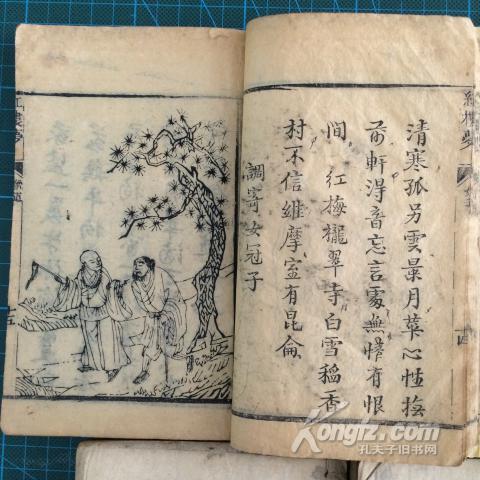 紅樓夢
清寒孤另雲景月華心性撫
前軒得音忘言處無情有恨
間 紅梅櫳翠寺白雪稻香
村不信維摩室有昆侖
調寄女冠子
紅樓夢
Kongfz.com
孔夫子旧书网